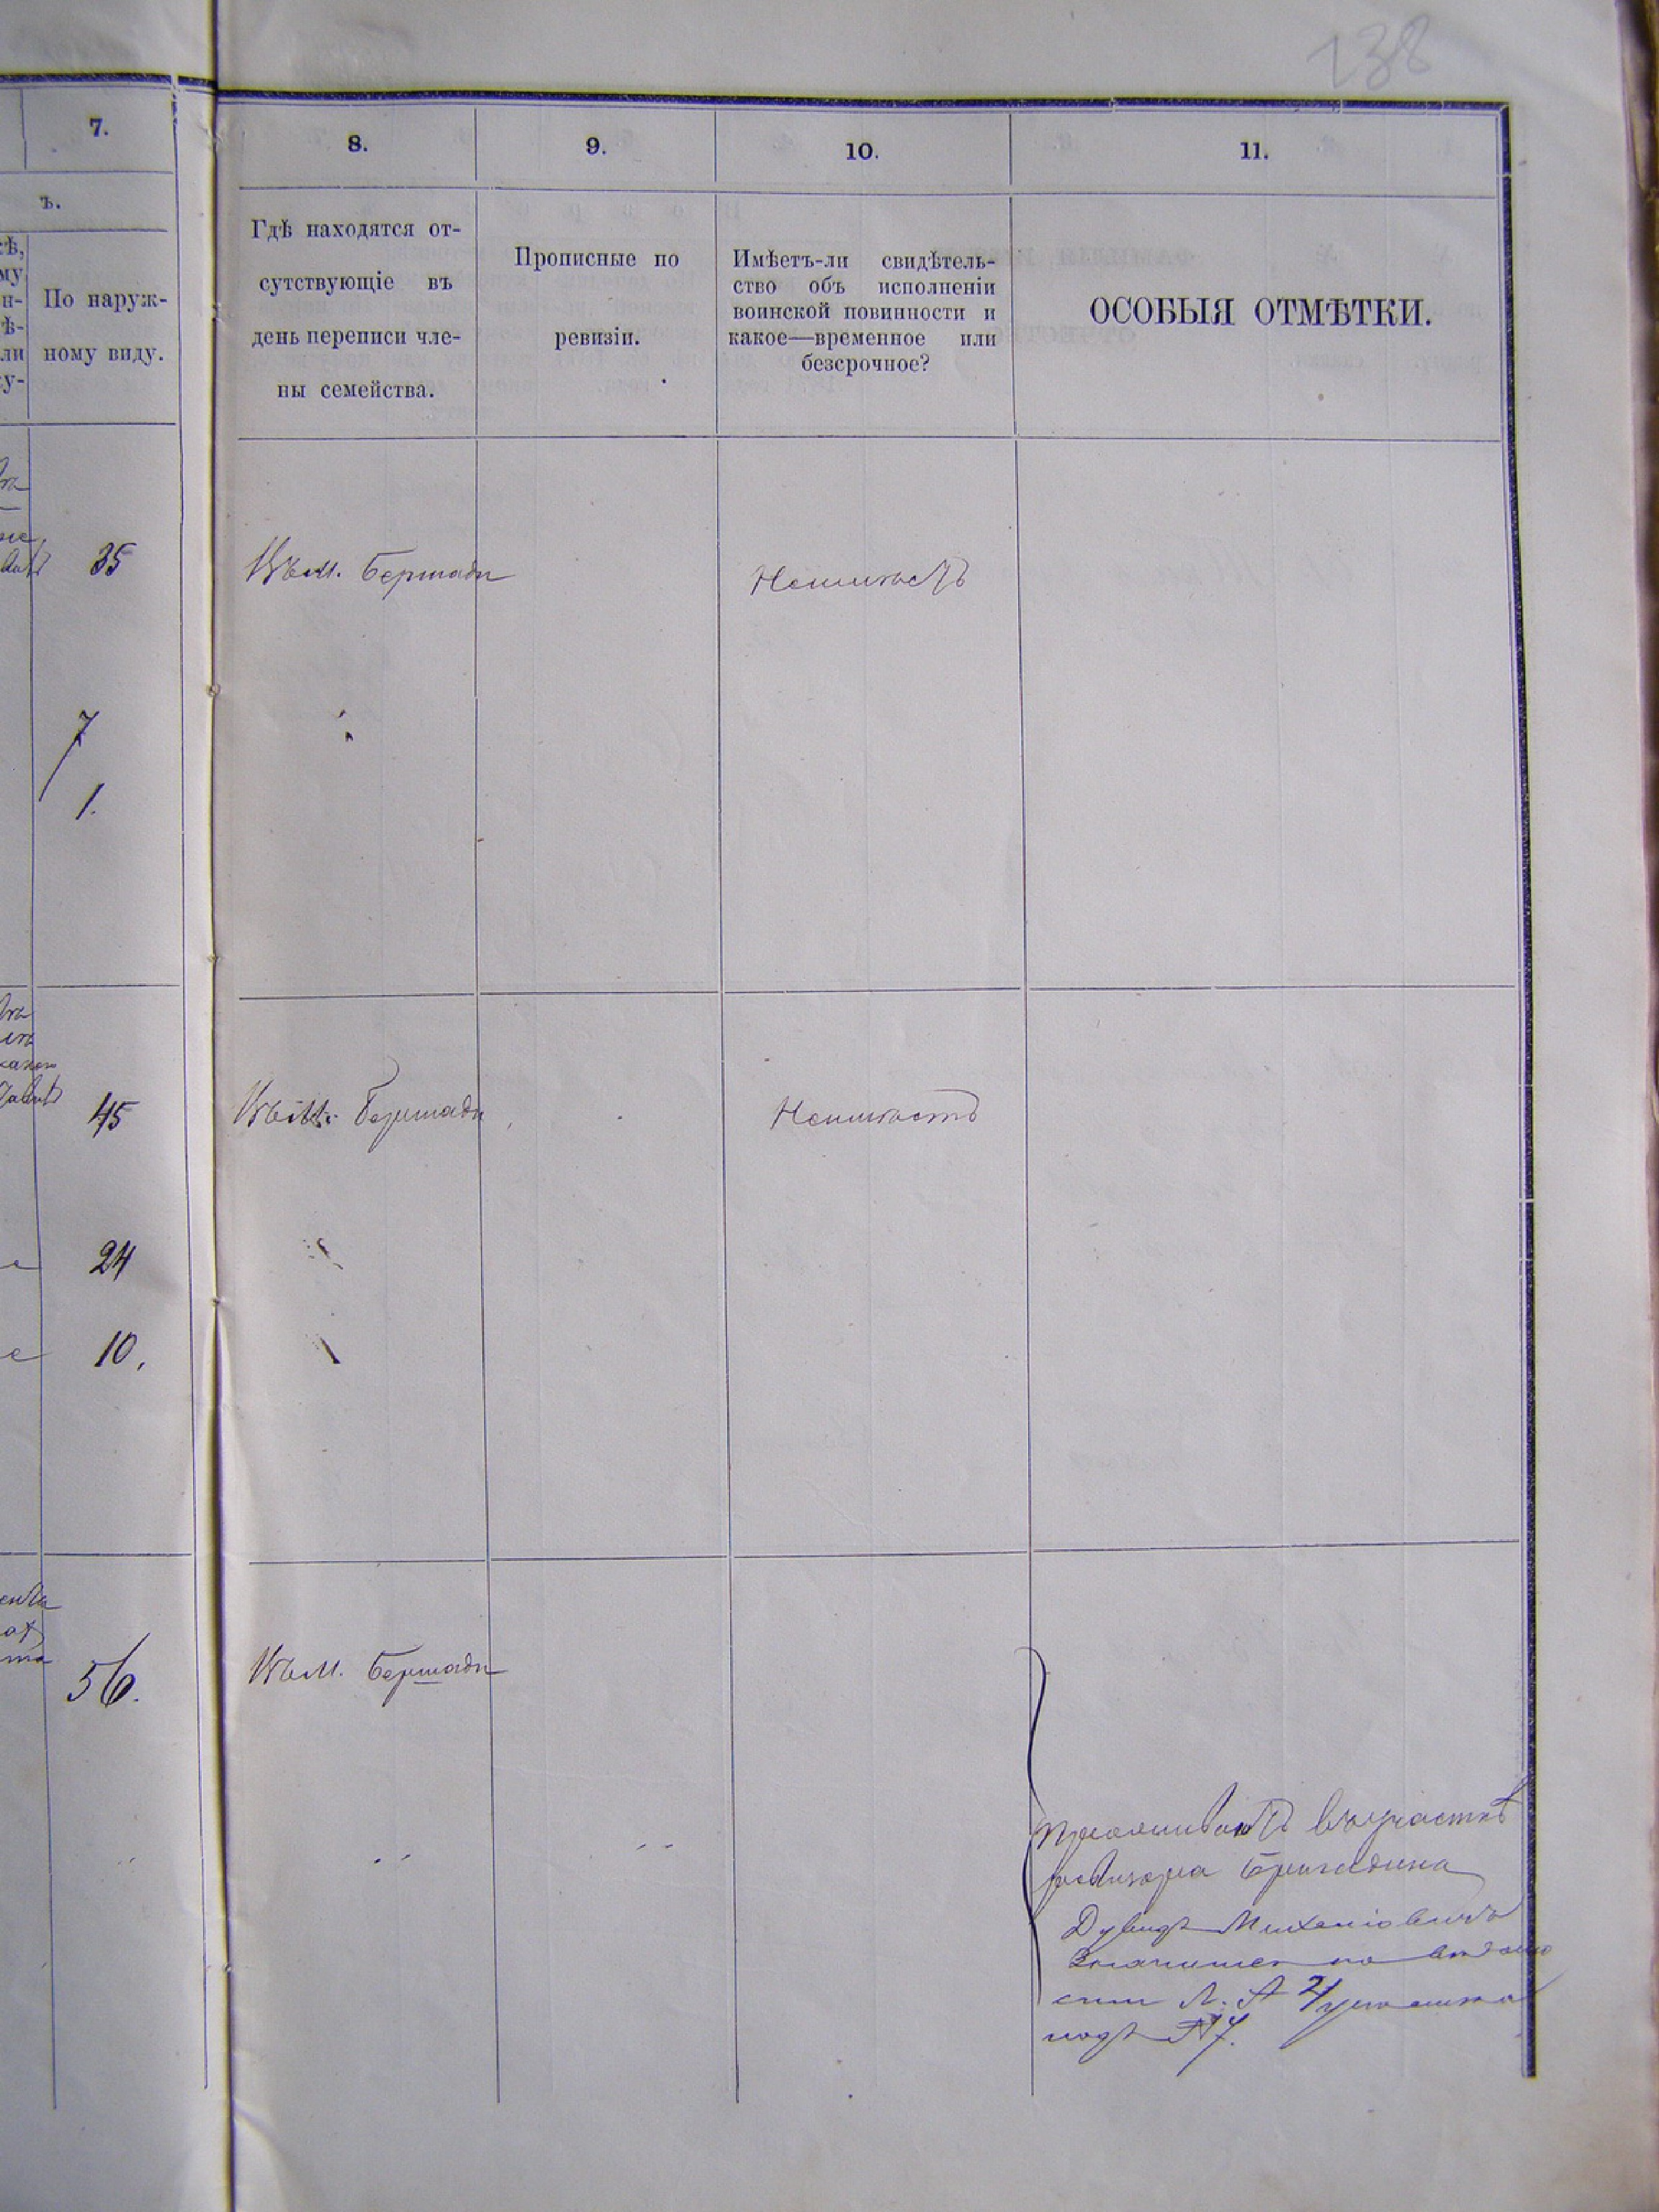 238
7.
8.
9.
10.
11.
ъ.
По наруж-
ному виду.
Гдѣ находятся от-
сутствующіе въ
день переписи чле-
ны семейства.
Прописные по
ревизіи.
Имѣетъ-ли свидѣтель-
ство объ исполненіи
воинской повинности и
какое—временное или
безсрочное?
ОСОБЫЯ ОТМѢТКИ.
35
Въ м. Бершади
Неимѣетъ
7
1.
45
Въ м. Бершади
Неимѣетъ
24
10.
56.
Въ м. Бершади
проживаетъ въ участкѣ
ревизора
Дувидъ
подъ № 7.